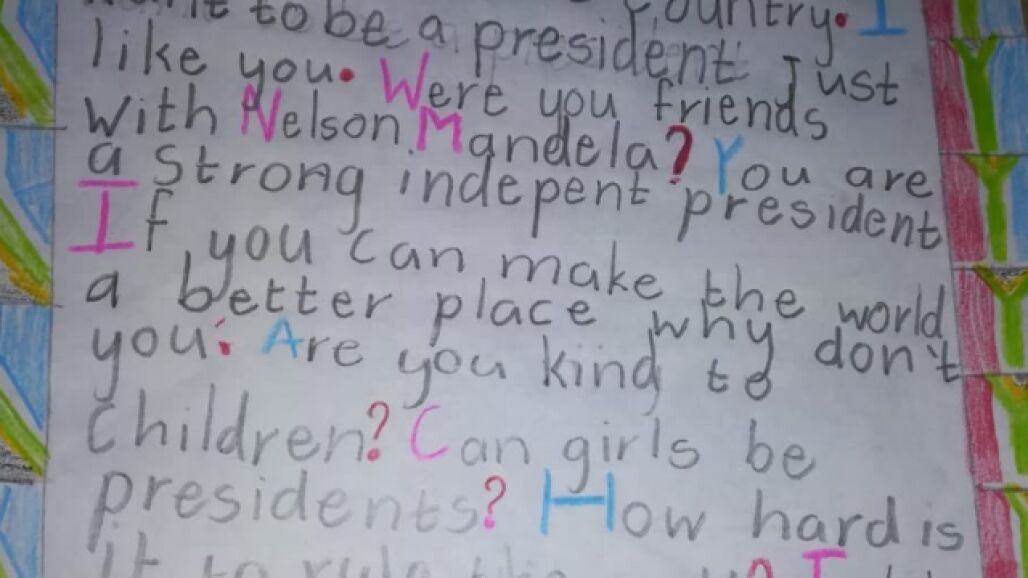 to be a president Country. I
like you. Were you friends Just
with Nelson Mandela? You are
a Strong indepent president
If you can make the world
a better place why don't
you. Are you kind to
children? Can girls be
presidents? How hard is
it to rule the